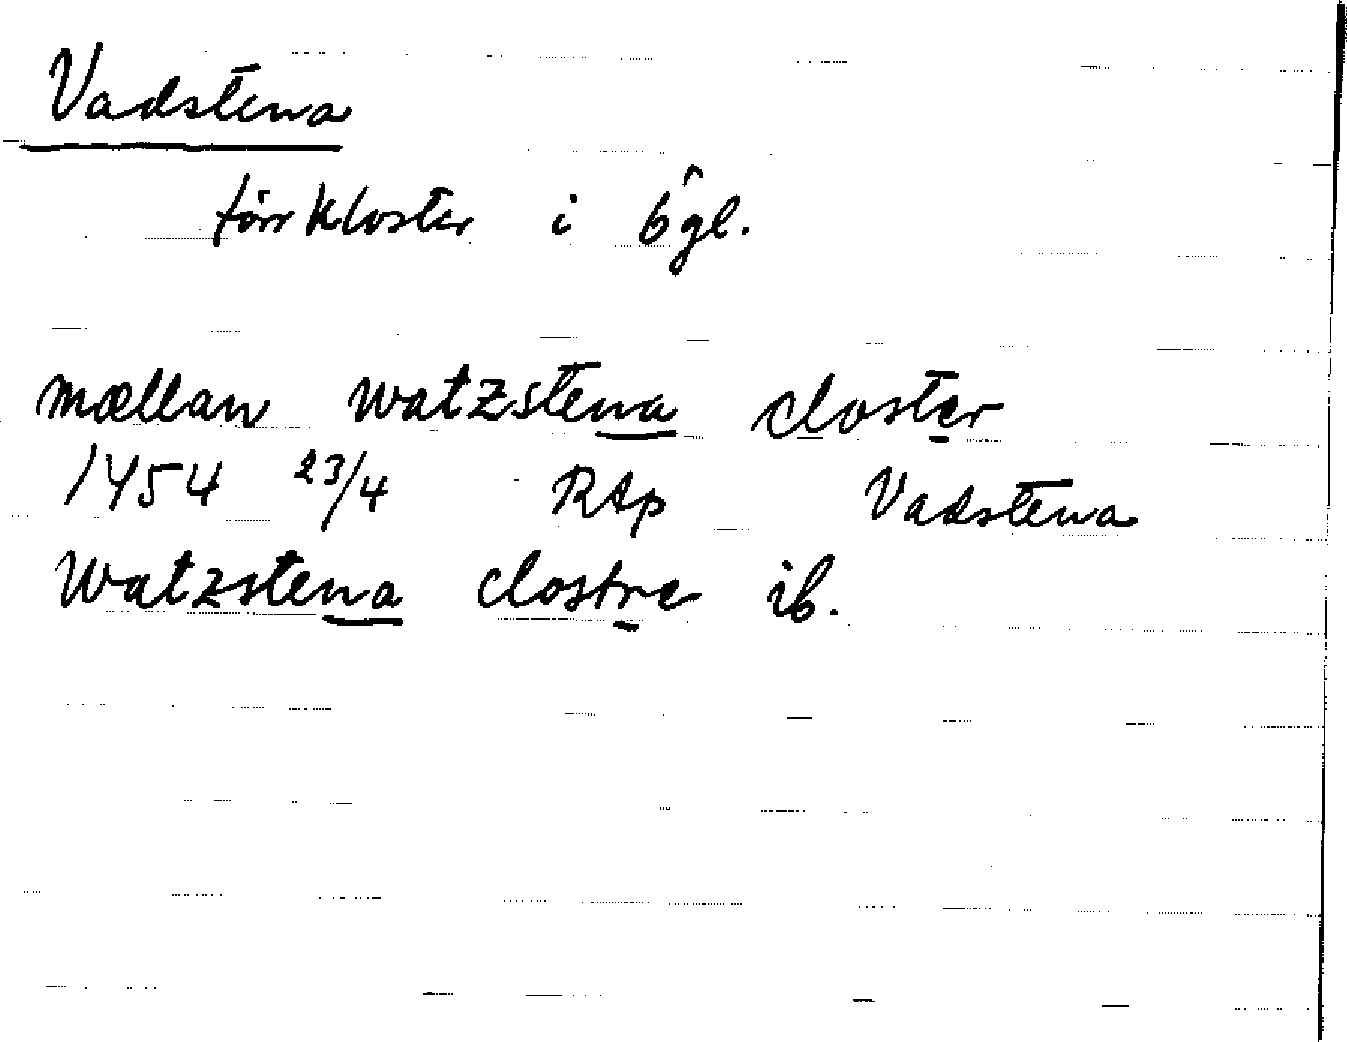 Vadstena
förr kloster i Ögl.
mællan watzstena closter
1454 23/4 RAp Vadstena
watzstena clostre ib.